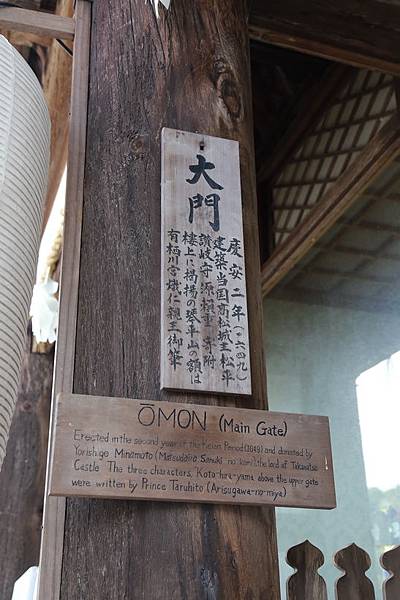 大門
慶安二年(一六四九)
建築当国高松城主松平
讃岐守源頼重寄附
楼上に掲揚の琴平山の額は
有栖川宮熾仁親王御筆
ŌMON (Main Gate)
Erected in the second year of the Keian Period (1649) and donated by
Yorishige Minamoto (Matsudaira Sanuki no kami) the lord of Takamatsu
Castle The three characters, Koto-hira-yama above the upper gate
were written by Prince Taruhito (Arisugawa-no-miya)